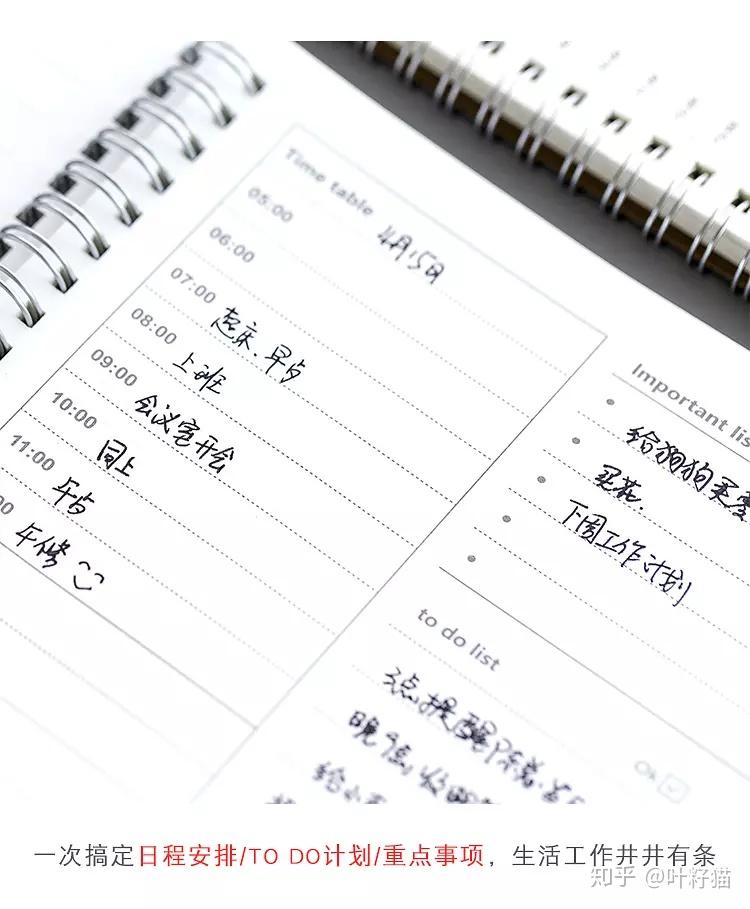 Time table
4月15日
05:00
06:00
07:00 起床.早点
08:00 上班
09:00 会议室开会
10:00 同上
11:00 午点
:00 午休
Important lis
给狗狗买
买花.
下周工作计划
to do list
3点提醒
晚9点
给小
Ok
一次搞定日程安排/TO DO计划/重点事项，生活工作井井有条
知乎 @叶籽猫